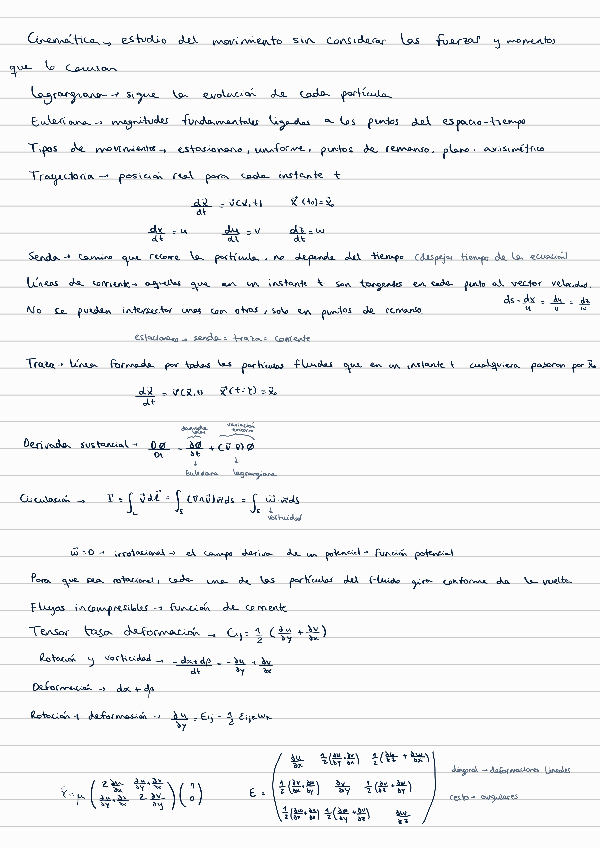 Cinemática → estudio del movimiento sin considerar las fuerzas y momentos
que lo causan
Lagrangiana → sigue la evolución de cada partícula
Euleriana → magnitudes fundamentales ligadas a los puntos del espacio-tiempo
Tipos de movimientos → estacionario, uniforme, puntos de remanso, plano, axisimétrico
Trayectoria → posición real para cada instante t
dx⃗/dt = v⃗(x⃗,t)   x⃗(t₀)=x⃗₀
dx/dt = u   dy/dt = v   dz/dt = w
Senda → camino que recorre la partícula, no depende del tiempo (despejar tiempo de la ecuación)
Líneas de corriente → aquellas que en un instante t son tangentes en cada punto al vector velocidad.
ds = dx/u = dy/v = dz/w
No se pueden intersectar unas con otras, solo en puntos de remanso
estacionario → senda = traza = corriente
Traza → línea formada por todas las partículas fluidas que en un instante t cualquiera pasaron por x⃗₀
dx⃗/dt = v⃗(x⃗,t)   x⃗(t=τ) = x⃗₀
derivada local   variación
Derivada sustancial → DØ/Dt = ∂Ø/∂t + (v⃗·∇)Ø
Euleriana   lagrangiana
Circulación → Γ = ∫_L v⃗ dl⃗ = ∫_S (∇∧v⃗) n⃗ ds = ∫_S w⃗·n⃗ ds
vorticidad
w⃗ = 0 → irrotacional → el campo deriva de un potencial → función potencial
Para que sea rotacional, cada una de las partículas del fluido gira conforme da la vuelta
Flujos incompresibles → función de corriente
Tensor tasa deformación → Cij = 1/2 (∂u/∂y + ∂v/∂x)
Rotación y vorticidad → -dα+dβ/dt = -∂u/∂y + ∂v/∂x
Deformación → dα + dβ
Rotación + deformación → ∂u/∂y = Eij - 1/2 Eijk wk
= μ (2∂u/∂x   ∂u/∂y+∂v/∂x
∂u/∂y+∂v/∂x   2∂v/∂y) (1
0)
E = (∂u/∂x   1/2(∂u/∂y+∂v/∂x)   1/2(∂u/∂z+∂w/∂x)
1/2(∂v/∂x+∂u/∂y)   ∂v/∂y   1/2(∂v/∂z+∂w/∂y)
1/2(∂w/∂x+∂u/∂z)   1/2(∂w/∂y+∂v/∂z)   ∂w/∂z)
diagonal → deformaciones lineales
resto → angulares